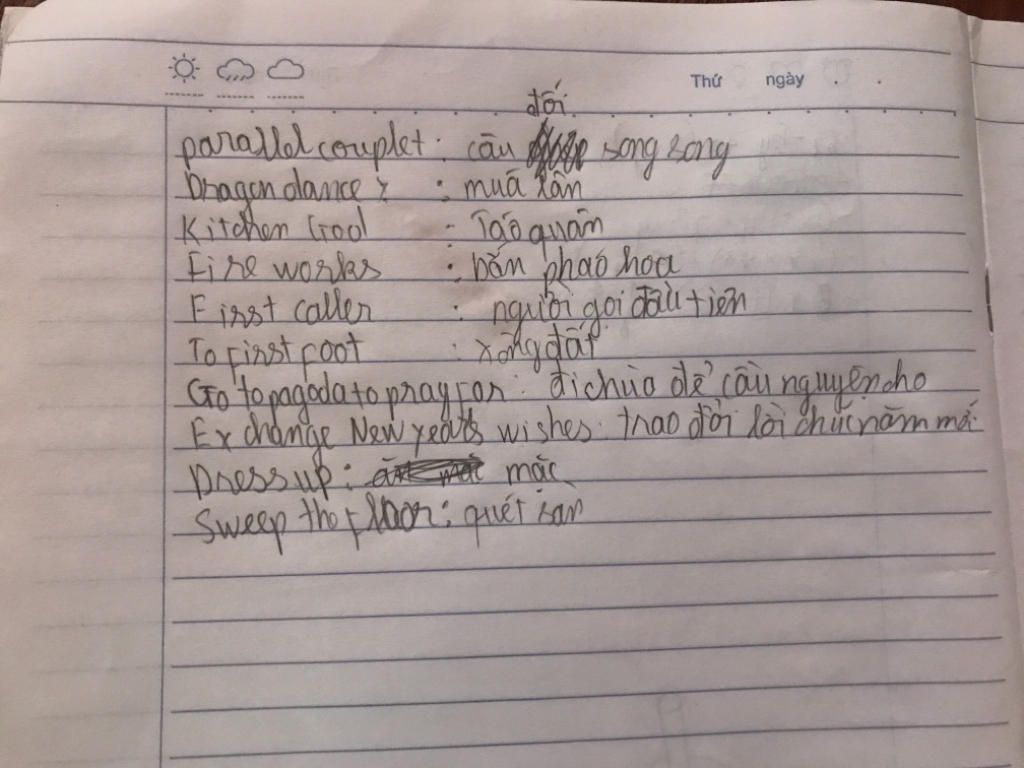 Thứ ngày . .
đối
parallel couplet : câu song song
Dragon dance : múa lân
Kitchen God : Táo quân
Fire works : bắn pháo hoa
First caller : người gọi đầu tiên
To first foot : xông đất
Go to pagoda to pray for : đi chùa để cầu nguyện cho
Exchange New years wishes : trao đổi lời chúc năm mới
Dress up : mặc
Sweep the floor : quét sàn